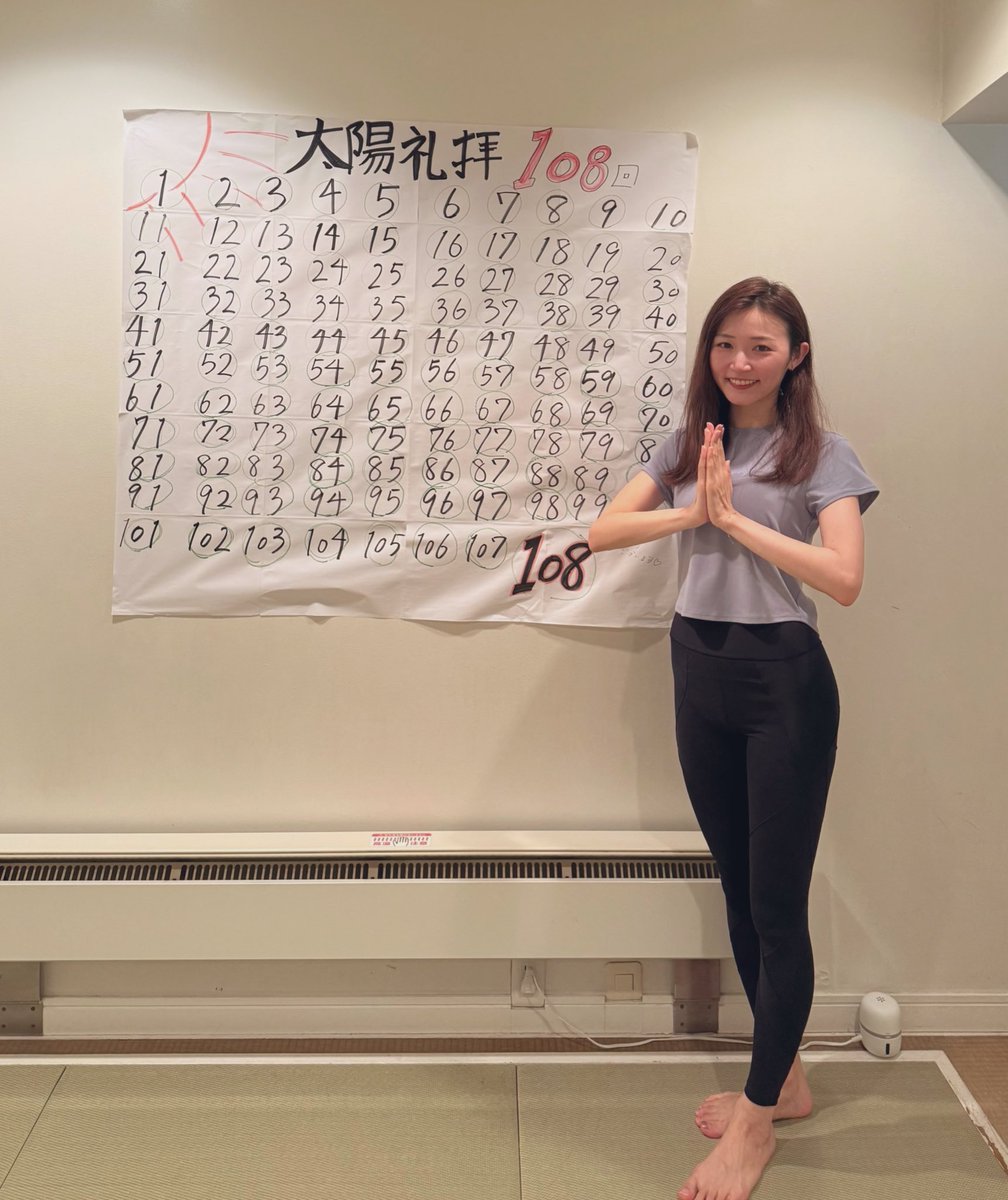 太陽礼拝 108回
1 2 3 4 5 6 7 8 9 10
11 12 13 14 15 16 17 18 19 20
21 22 23 24 25 26 27 28 29 30
31 32 33 34 35 36 37 38 39 40
41 42 43 44 45 46 47 48 49 50
51 52 53 54 55 56 57 58 59 60
61 62 63 64 65 66 67 68 69 70
71 72 73 74 75 76 77 78 79 8
81 82 83 84 85 86 87 88 89
91 92 93 94 95 96 97 98 99
101 102 103 104 105 106 107 108
高温 注意